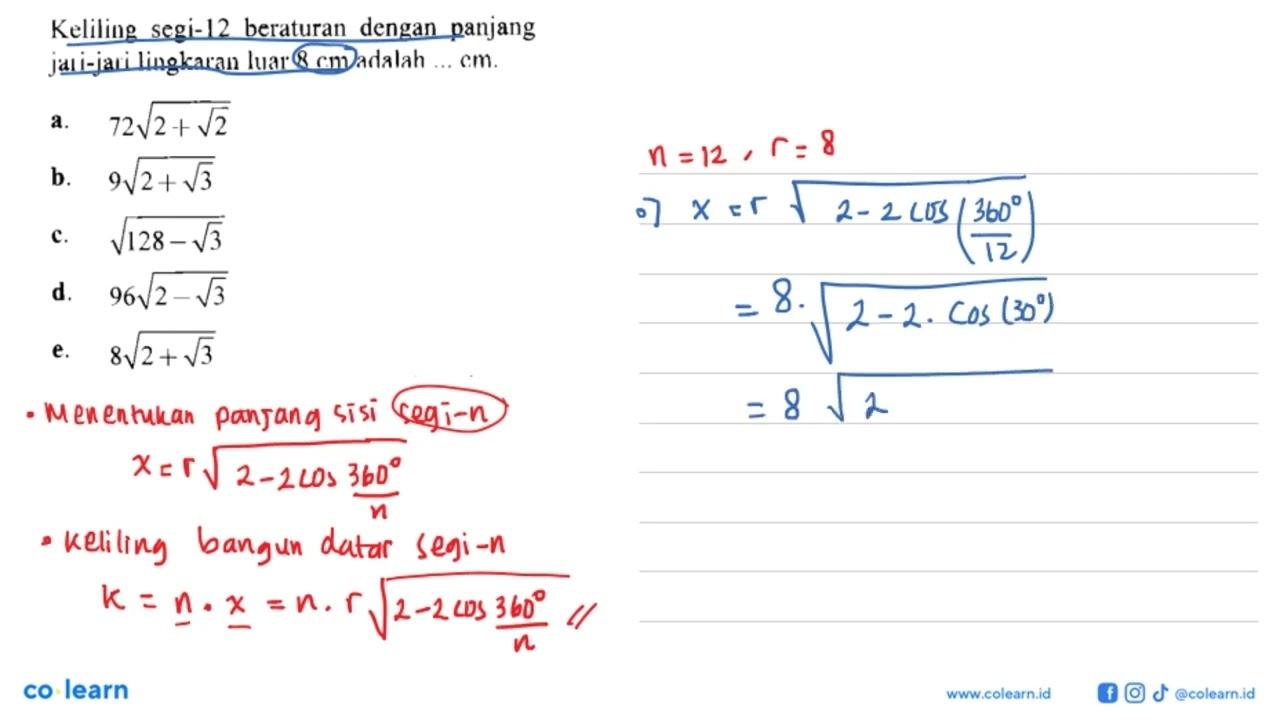 Keliling segi-12 beraturan dengan panjang
jari-jari lingkaran luar 8 cm adalah ... cm.
a. 72√(2 + √2)
b. 9√(2 + √3)
c. √(128 – √3)
d. 96√(2 – √3)
e. 8√(2 + √3)
• Menentukan panjang sisi segi-n
x = r √(2 - 2 cos 360°/n)
• Keliling bangun datar segi-n
K = n . x = n . r √(2 - 2 cos 360°/n) //
n = 12 , r = 8
•) x = r √(2 - 2 cos (360°/12))
= 8 . √(2 - 2 . cos (30°))
= 8 √2
co learn
www.colearn.id
@colearn.id